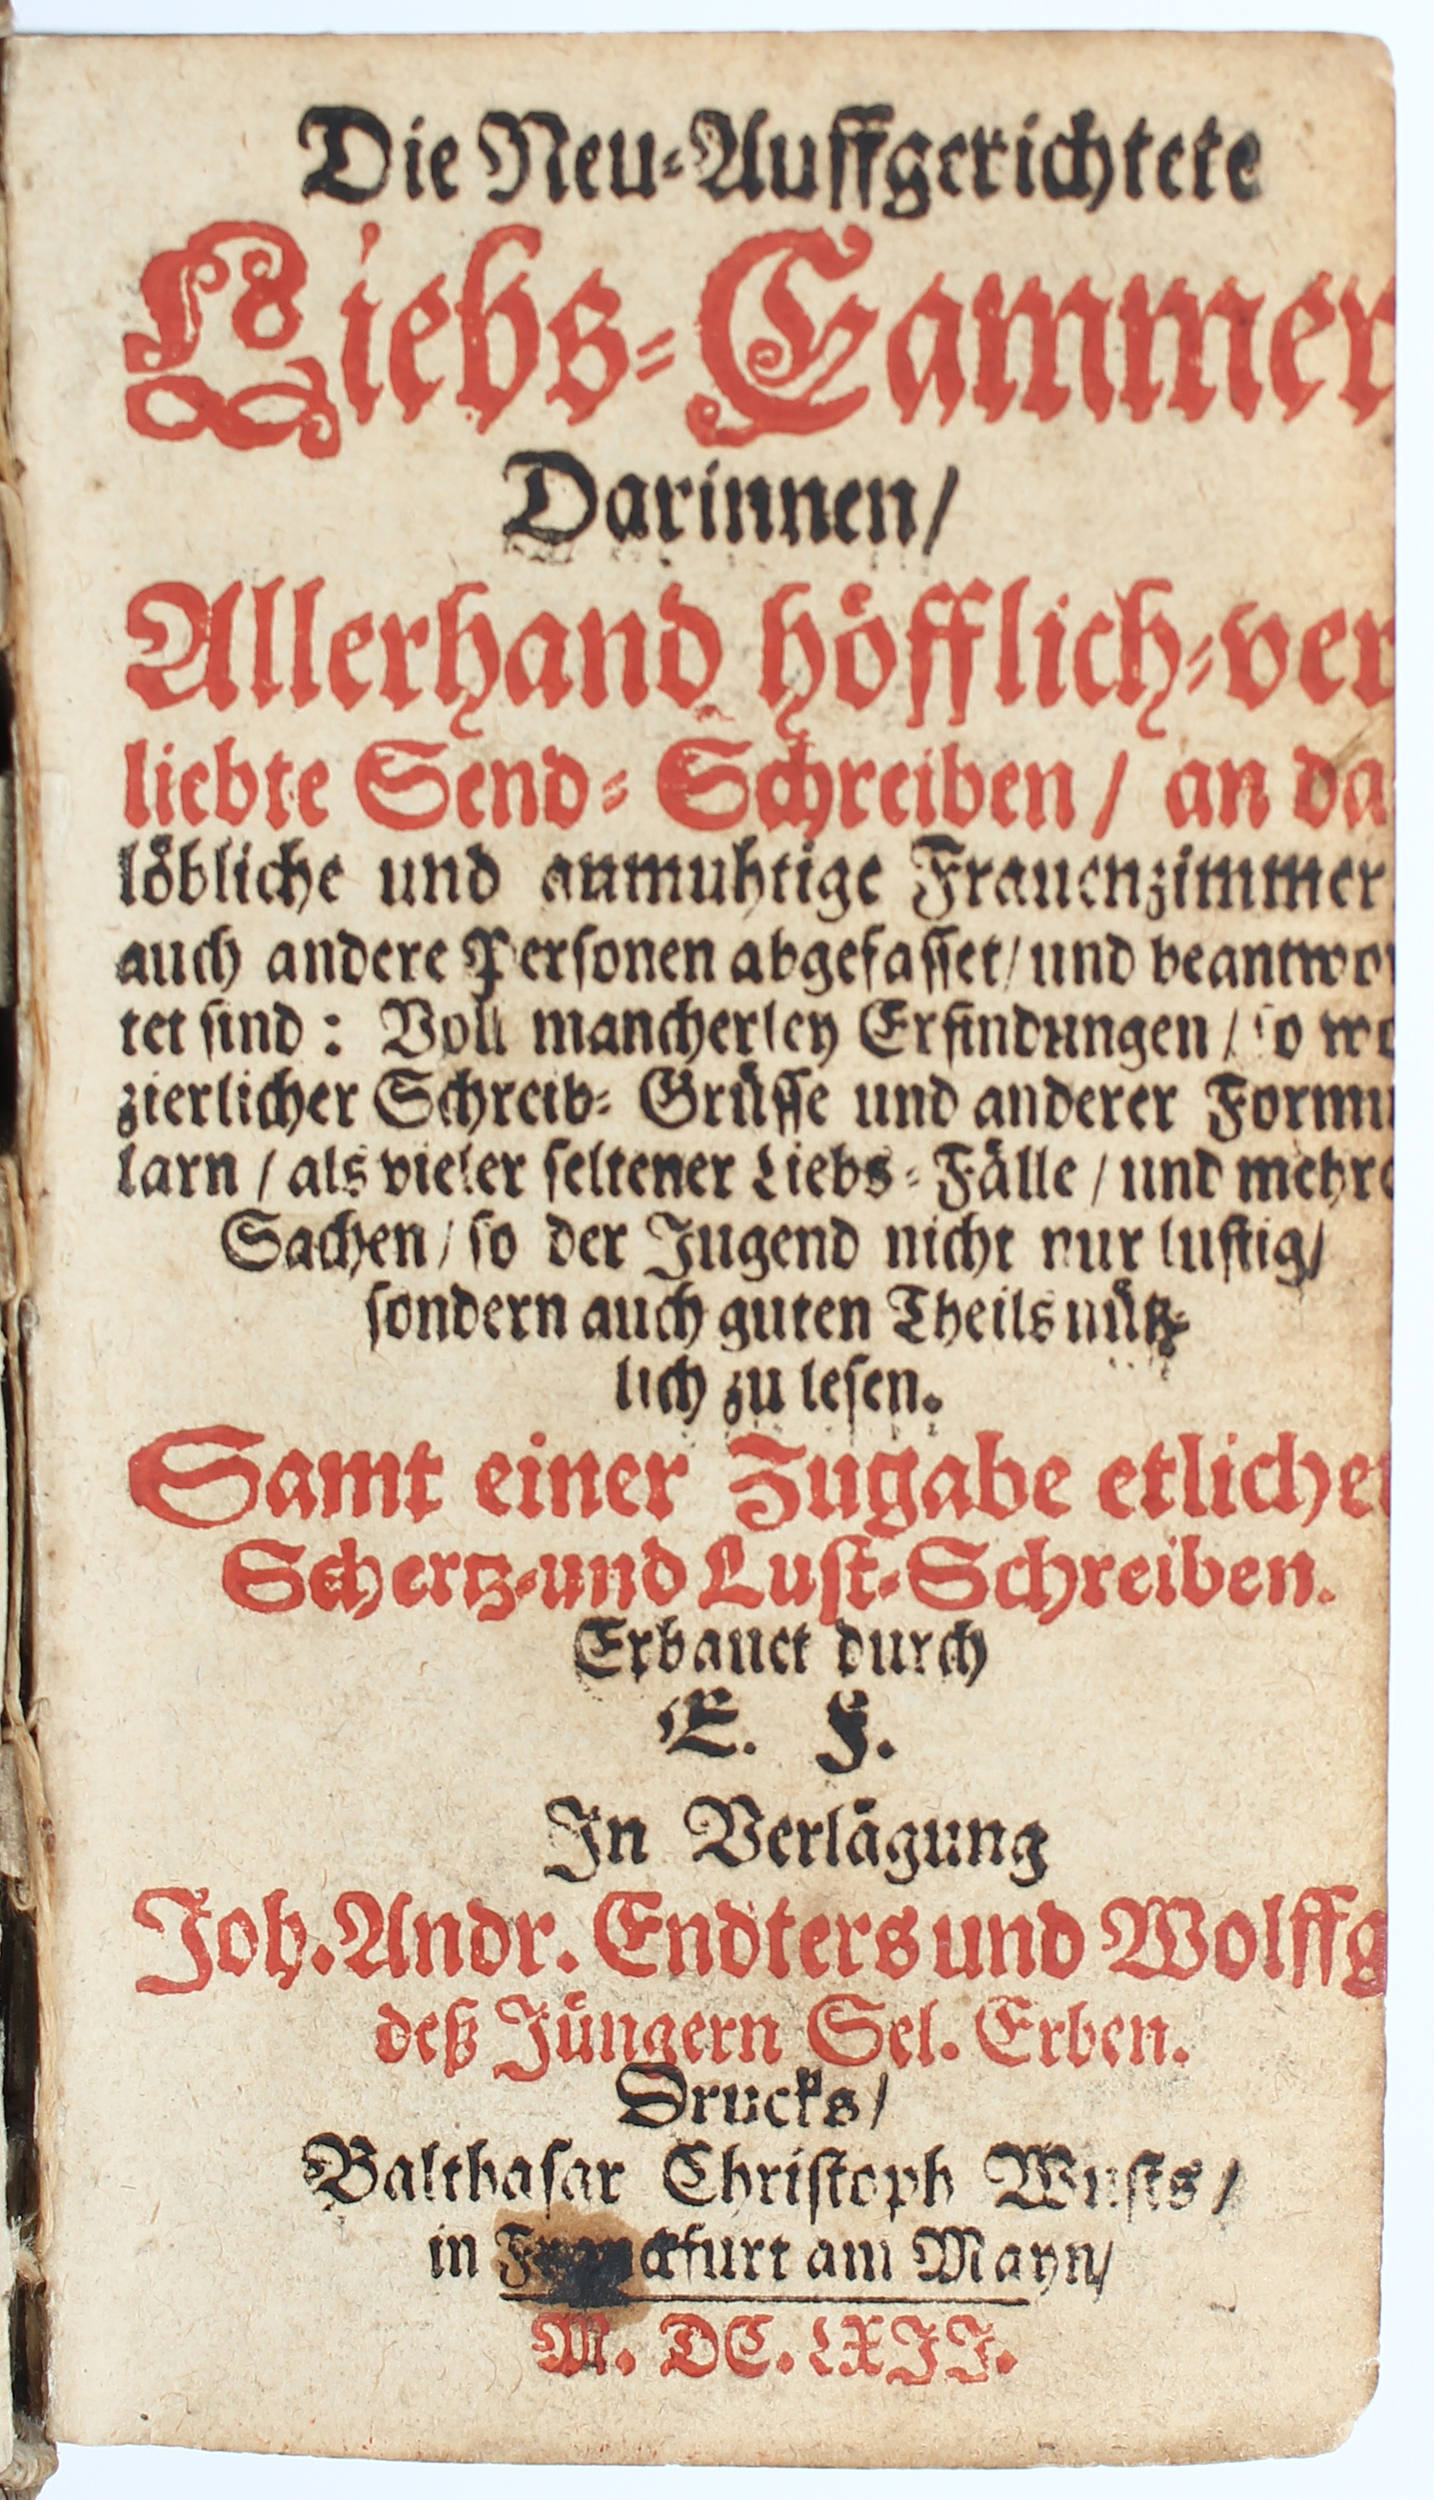 Die Neu-Auffgerichtete
Liebs-Cammer
Darinnen/
Allerhand höfflich-ver
liebte Send-Schreiben/ an da
löbliche und anmuhtige Frauenzimmer
auch andere Personen abgefasset/ und beantwor
tet sind: Voll mancherley Erfindungen/ so wo
zierlicher Schreib-Grüsse und anderer Formu
larn/ als vieler seltener Liebs-Fälle/ und mehre
Sachen/ so der Jugend nicht nur lustig/
sondern auch guten Theils nütz-
lich zu lesen.
Samt einer Zugabe etlicher
Schertz-und Lust-Schreiben.
Erbauet durch
E. F.
In Verlägung
Joh. Andr. Endters und Wolffg
deß Jüngern Sel. Erben.
Drucks/
Balthasar Christoph Wusts/
in Franckfurt am Mayn/
M. DC. LXII.